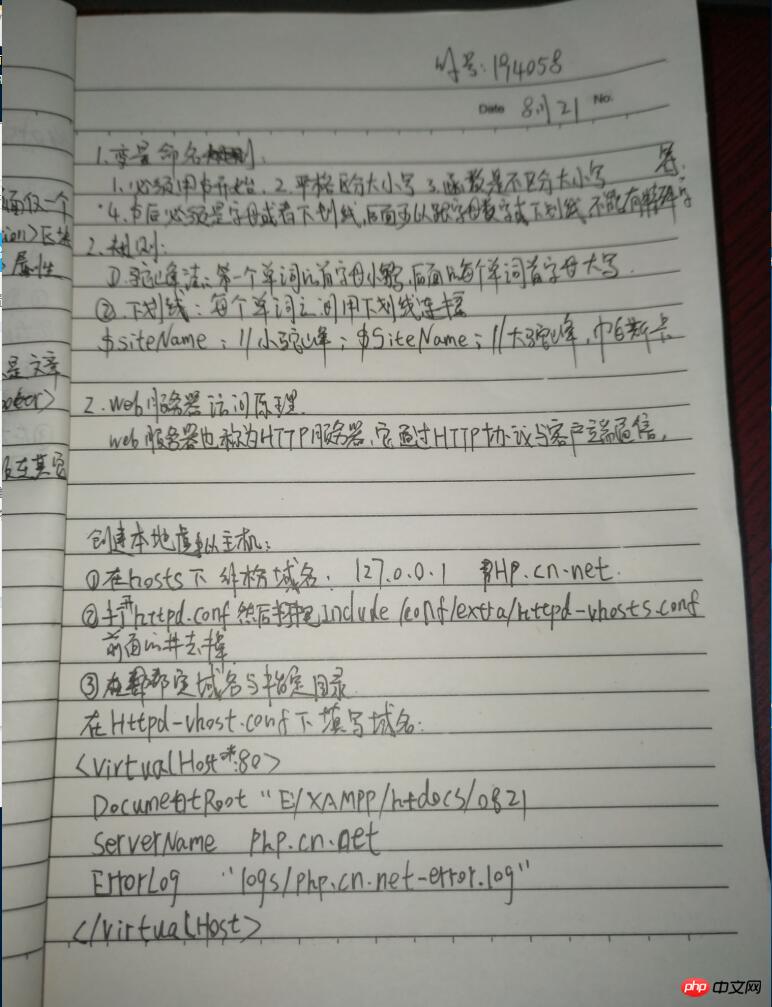 号:194058
Date 8月21 No.
1.变量命名
1.必须用$开始. 2.严格区分大小写 3.函数是不区分大小写 等.
4.$后必须是字母或者下划线,后面可以跟字母数字或下划线,不能有特殊字
2.规则:
①.驼峰法:第一个单词的首字母小写,后面的每个单词首字母大写.
②.下划线:每个单词之间用下划线连接
$siteName; //小驼峰; $SiteName; //大驼峰,帕斯卡
2.web服务器访问原理.
web服务器也称为HTTP服务器,它通过HTTP协议与客户端通信.
创建本地虚拟主机:
①在hosts下 域名: 127.0.0.1 PHP.cn.net.
②打开httpd.conf 然后 Include /conf/extra/httpd-vhosts.conf
前面的#去掉
③ 定域名与指定目录
在Httpd-vhost.conf下填写域名:
<VirtualHost *:80>
DocumentRoot "E/XAMPP/htdocs/0821
ServerName php.cn.net
ErrorLog "logs/php.cn.net-error.log"
</VirtualHost>
面仅一个
ion>区块
属性
是文章
ooter>
在其它
php 中文网